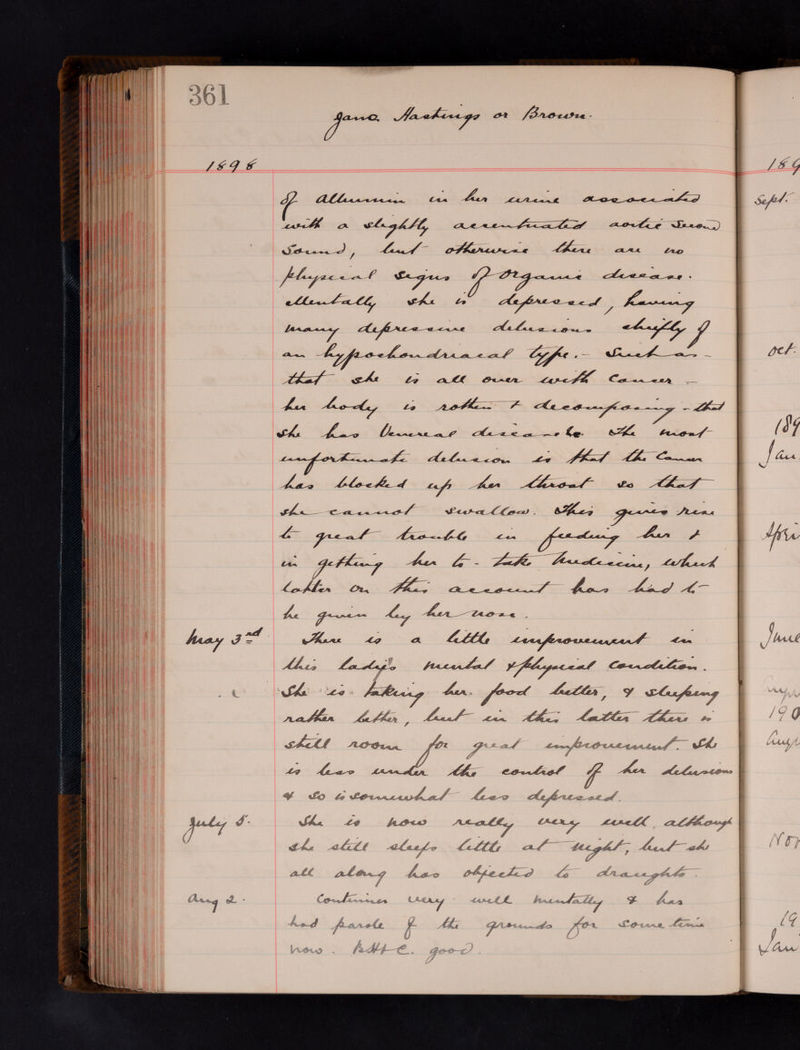 361
Jane Hastings or Brown.
1898
of Albumin in her urine associated
with a slightly accentuated aortic Second
Sound, but otherwise there are no
physical signs of Organic disease.
Mentally she is depressed, having
many depressive delusions chiefly of
an hypochondriacal type. - Such as -
that she is all over with Cancer -
her body is rotten & decomposing - that
she has Venereal disease &c. The most
unfortunate delusion is that the Cancer
has blocked up her throat so that
she cannot swallow. This gives rise
to great trouble in feeding her &
in getting her to take Medicine, which
latter on this account has had to
be given by her nose.
May 3rd There is a little improvement in
this lady's mental & physical condition.
She is taking her food better, & sleeping
rather better, but in this latter there is
still room for great improvement. She
is less under the control of her delusions
& so is somewhat less depressed.
July 5. She is now really very well, although
she still sleeps little at night, but she
all along has objected to draughts.
Aug 2. Continues very well mentally & has
had parole of the grounds for some time
now. B.H. & C. good.
189
Sept.
Oct.
189
Jan
Apri
June
190
Aug
Nov
19
Jan